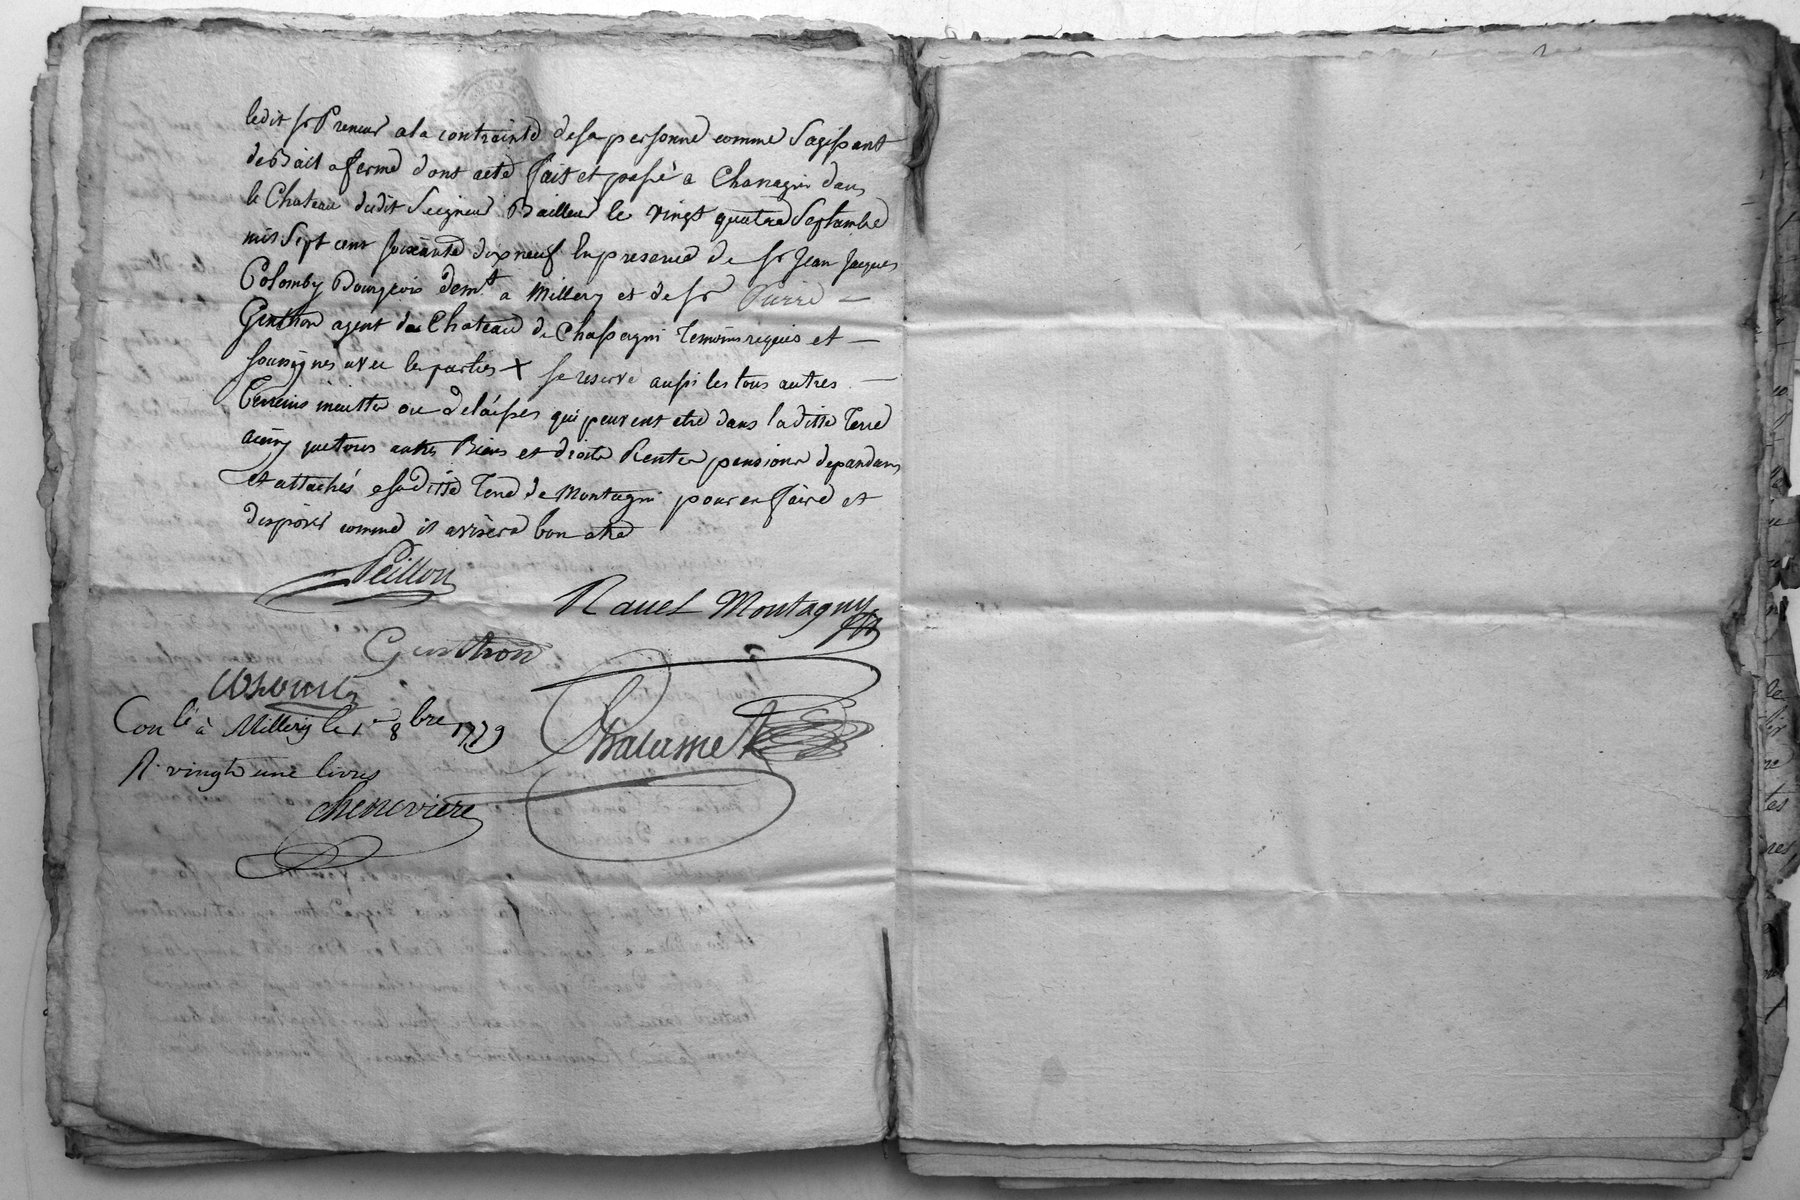 ledit sr Preneur a la contrainte de sa personne comme Sagissant
de Bail a ferme dont acte fait et passé a Chassagni dans
le Chateau dudit Seigneur Bailleur le vingt quatre Septembre
mil Sept cent soixante dix neuf En presence de sr Jean Jacques
Colomby Bourgeois demt. a Millery et de sr Pierre —
Genthon agent du Chateau de Chassagni temoins requis et —
soussignes avec les parties X se reserve aussi les tous autres —
Terreins incultes ou delaissés qui peuvent etre dans laditte Terre
ainsy que tous autres Biens et droits Rentes pensions dependans
et attachés a saditte Terre de Montagni pour en faire et
disposer comme il avisera bon etre
Peillon
Ravel Montagny
Genthon
Colomby
Chalamel
Conlé à Millery le 1er 8bre 1779
R. vingt une livres
cheneviere